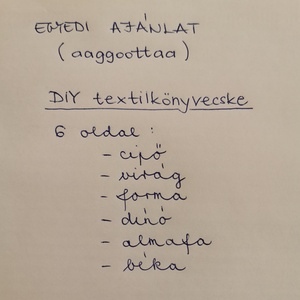 EGYEDI AJÁNLAT
(aaggoottaa)
DIY textilkönyvecske
6 oldal :
- cipő
- virág
- forma
- dínó
- almafa
- béka